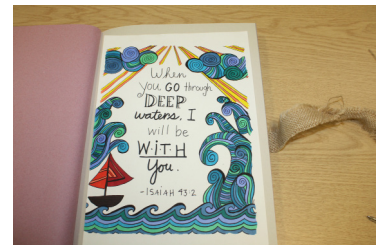 When
you GO through
DEEP
waters, I
will be
WITH
you.
-ISAIAH 43:2